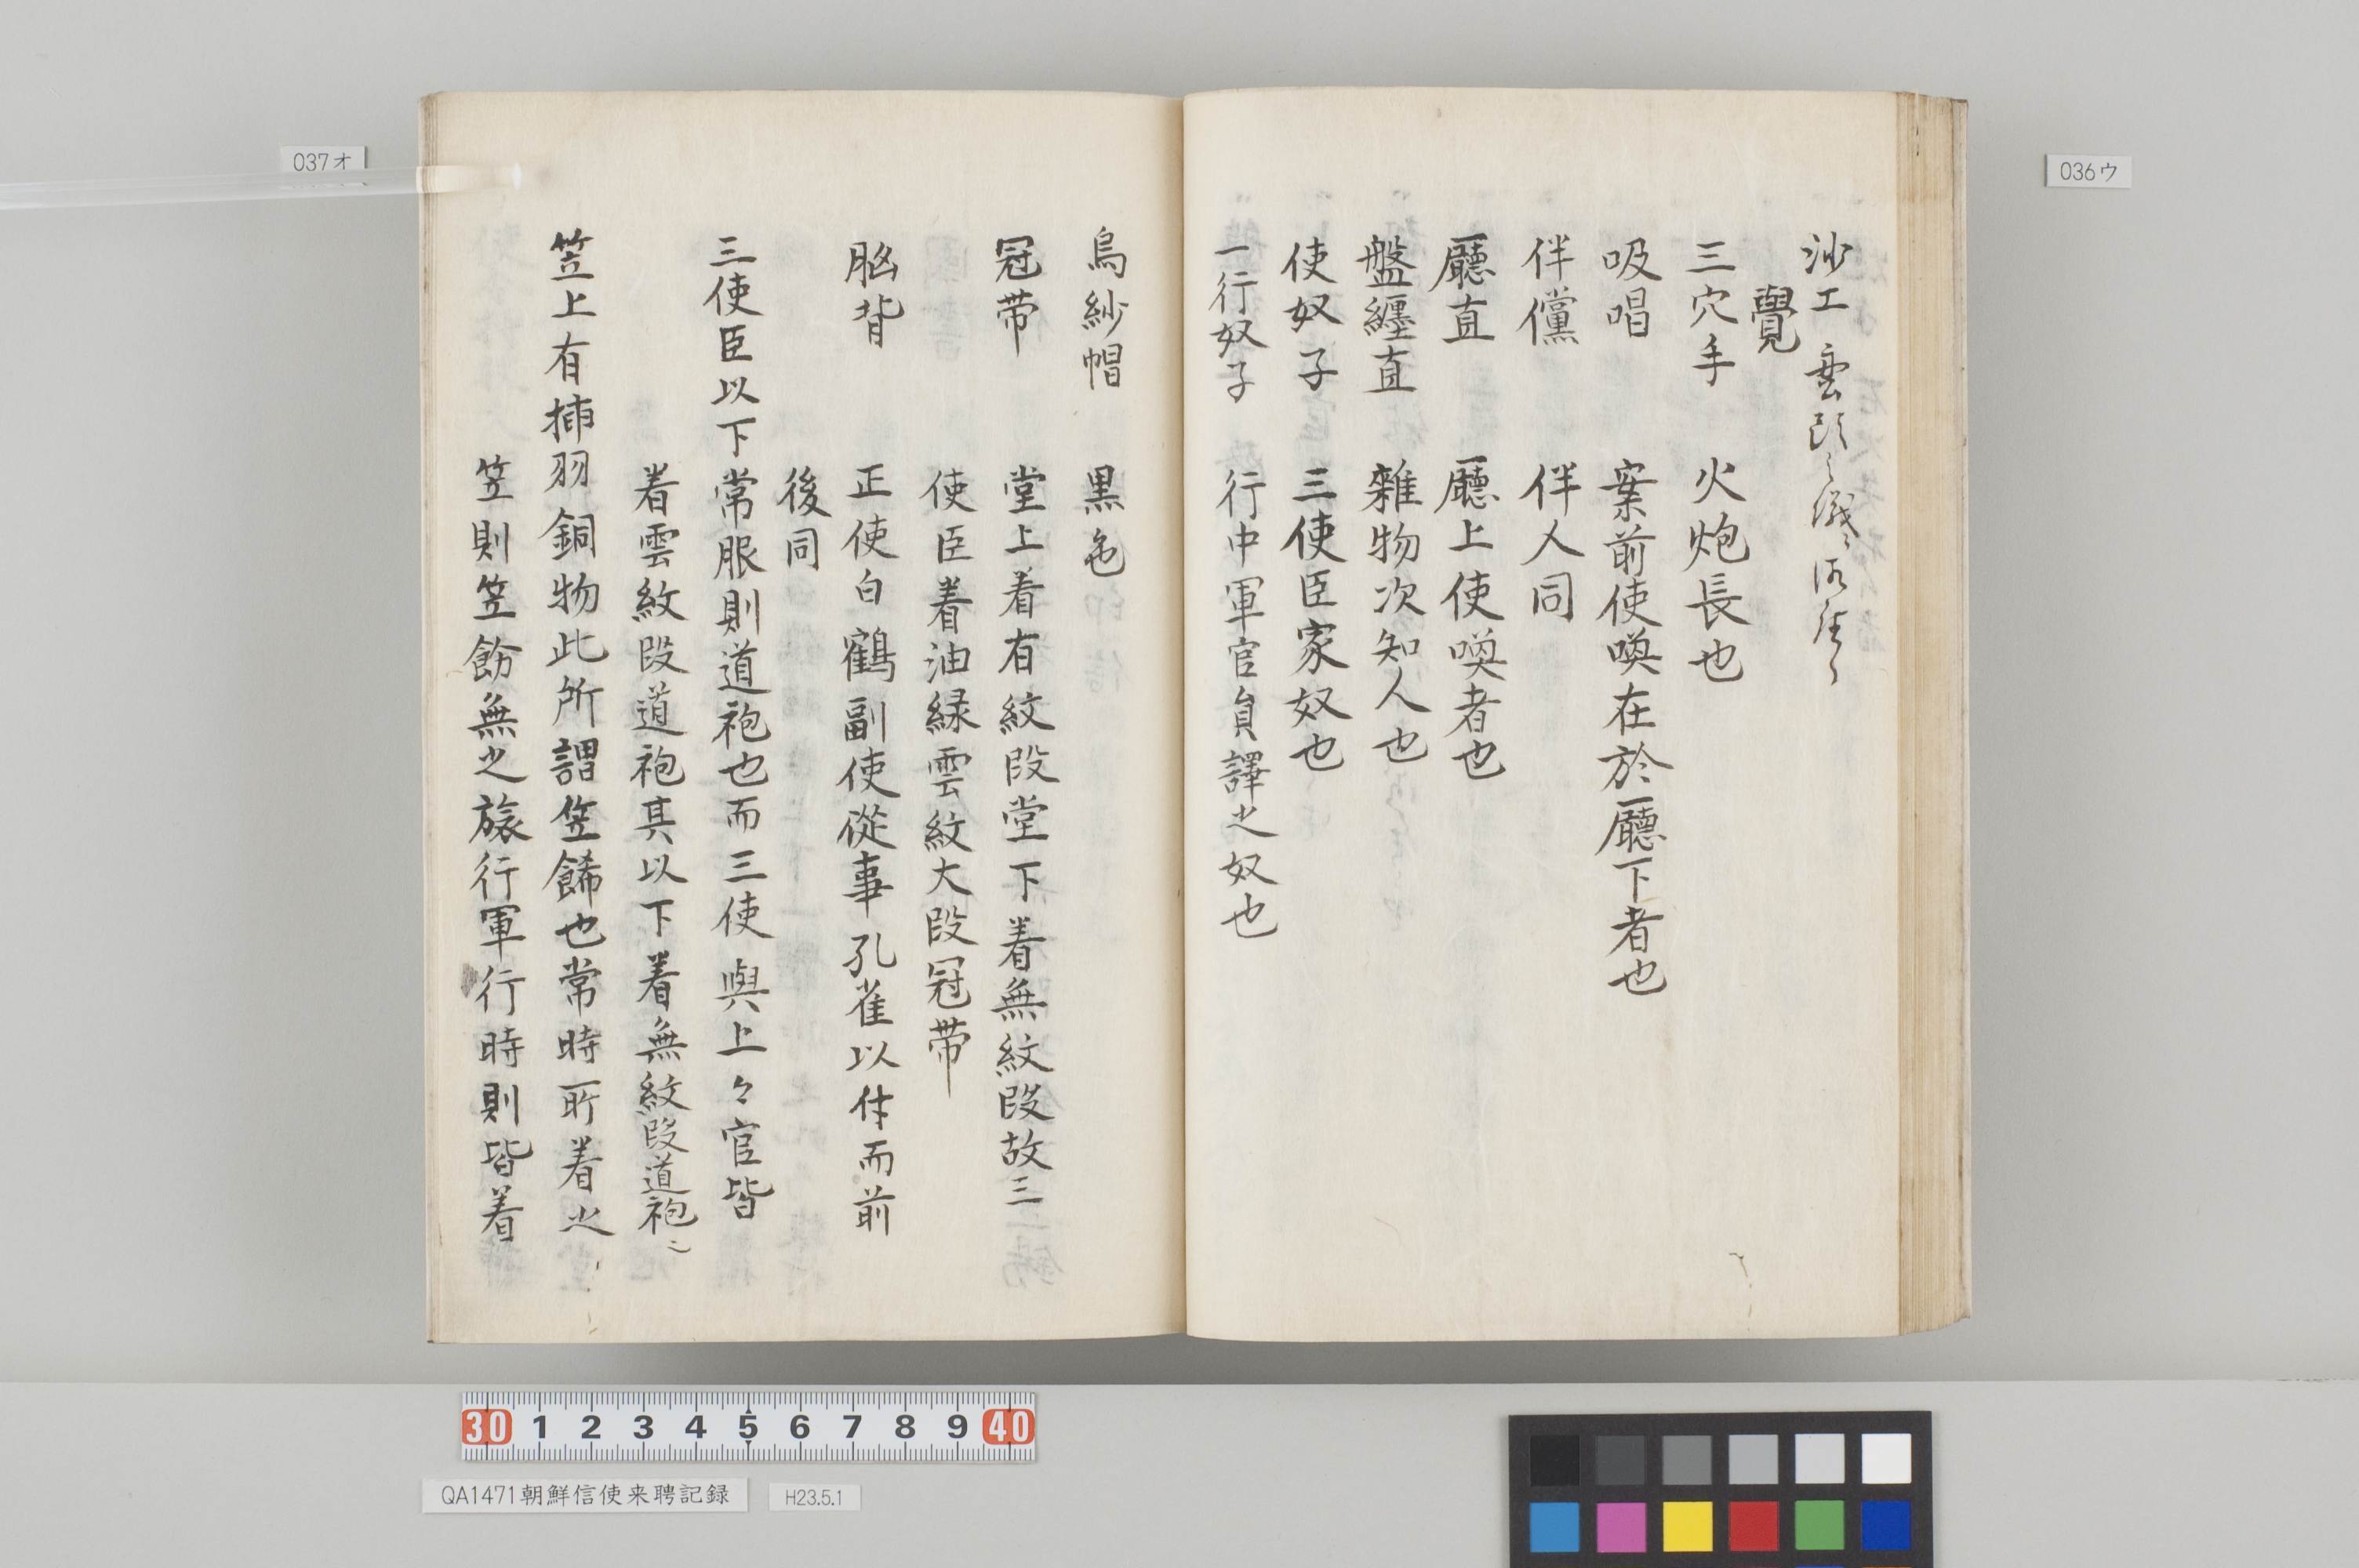 沙工
覺
三穴手 火炮長也
吸唱 案前使喚在於廳下者也
伴儻 伴人同
廳直 廳上使喚者也
盤纏直 雜物次知人也
使奴子 三使臣家奴也
一行奴子 行中軍官員譯之奴也
烏紗帽 黒色
冠帯 堂上着有紋段堂下着無紋段故三
使臣着油緑雲紋大段冠帯
胸背 正使白鶴副使從事孔雀以付而前
後同
三使臣以下常服則道袍也而三使與上々官皆
着雲紋段道袍其以下着無紋段道袍
笠上有揷羽銅物此所謂笠餙也常時所着之
笠則笠餝無之旅行軍行時則皆着
036ウ
037オ
30 1 2 3 4 5 6 7 8 9 40
QA1471朝鮮信使来聘記録
H23.5.1